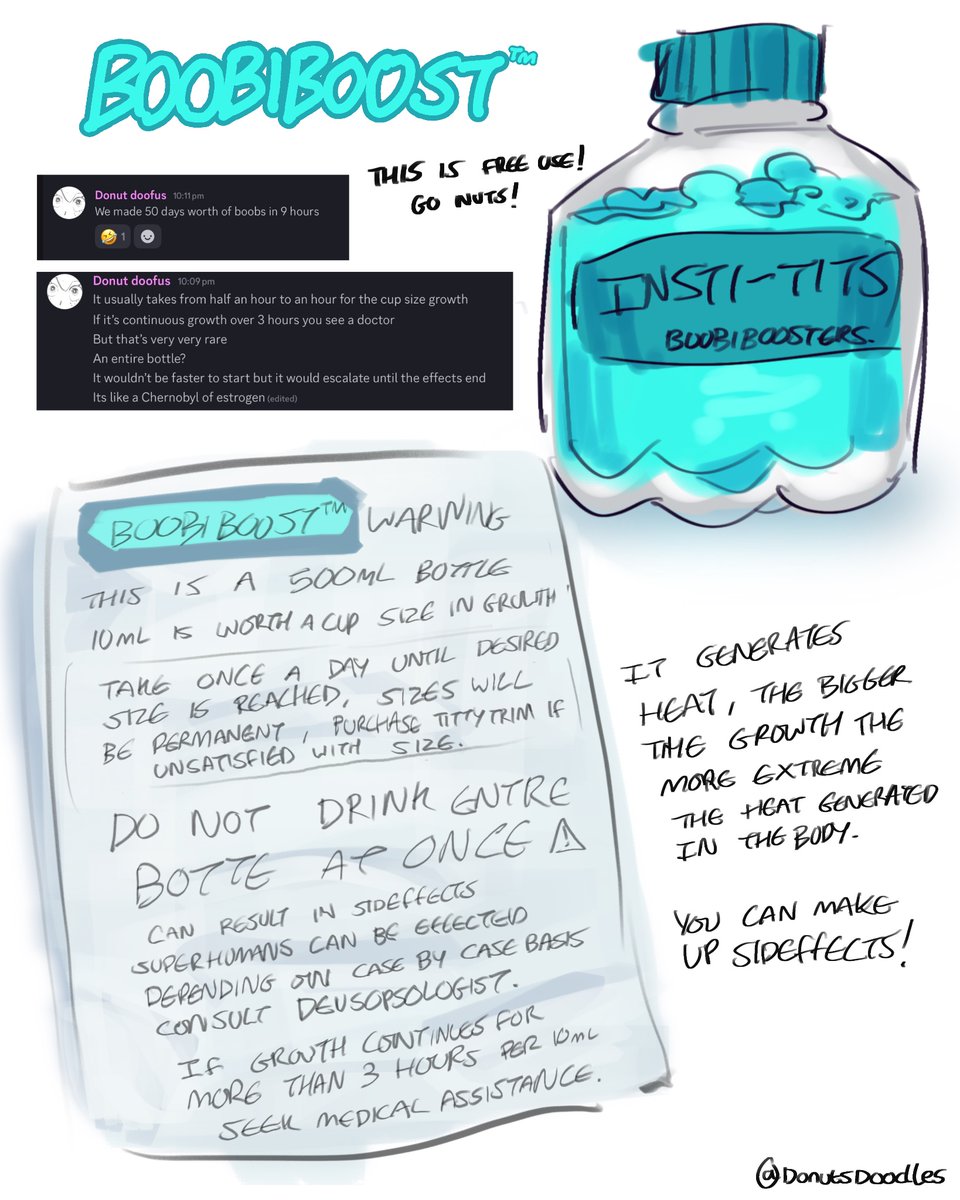 BOOBIBOOST™
THIS IS FREE USE!
GO NUTS!
Donut doofus 10:11 pm
We made 50 days worth of boobs in 9 hours
1
Donut doofus 10:09 pm
It usually takes from half an hour to an hour for the cup size growth
If it's continuous growth over 3 hours you see a doctor
But that's very very rare
An entire bottle?
It wouldn't be faster to start but it would escalate until the effects end
Its like a Chernobyl of estrogen (edited)
INSTI-TITS
BOOBIBOOSTERS.
BOOBIBOOST™ WARNING
THIS IS A 500ML BOTTLE
10ML IS WORTH A CUP SIZE IN GROWTH
TAKE ONCE A DAY UNTIL DESIRED
SIZE IS REACHED, SIZES WILL
BE PERMANENT, PURCHASE TITTYTRIM IF
UNSATISFIED WITH SIZE.
DO NOT DRINK ENTRE
BOTTE AT ONCE ⚠
CAN RESULT IN SIDEFFECTS
SUPERHUMANS CAN BE EFFECTED
DEPENDING ON CASE BY CASE BASIS
CONSULT DEUSOPSOLOGIST.
IF GROWTH CONTINUES FOR
MORE THAN 3 HOURS PER 10ML
SEEK MEDICAL ASSISTANCE.
IT GENERATES
HEAT, THE BIGGER
THE GROWTH THE
MORE EXTREME
THE HEAT GENERATED
IN THE BODY.
YOU CAN MAKE
UP SIDEFFECTS!
@DONUTSDOODLES